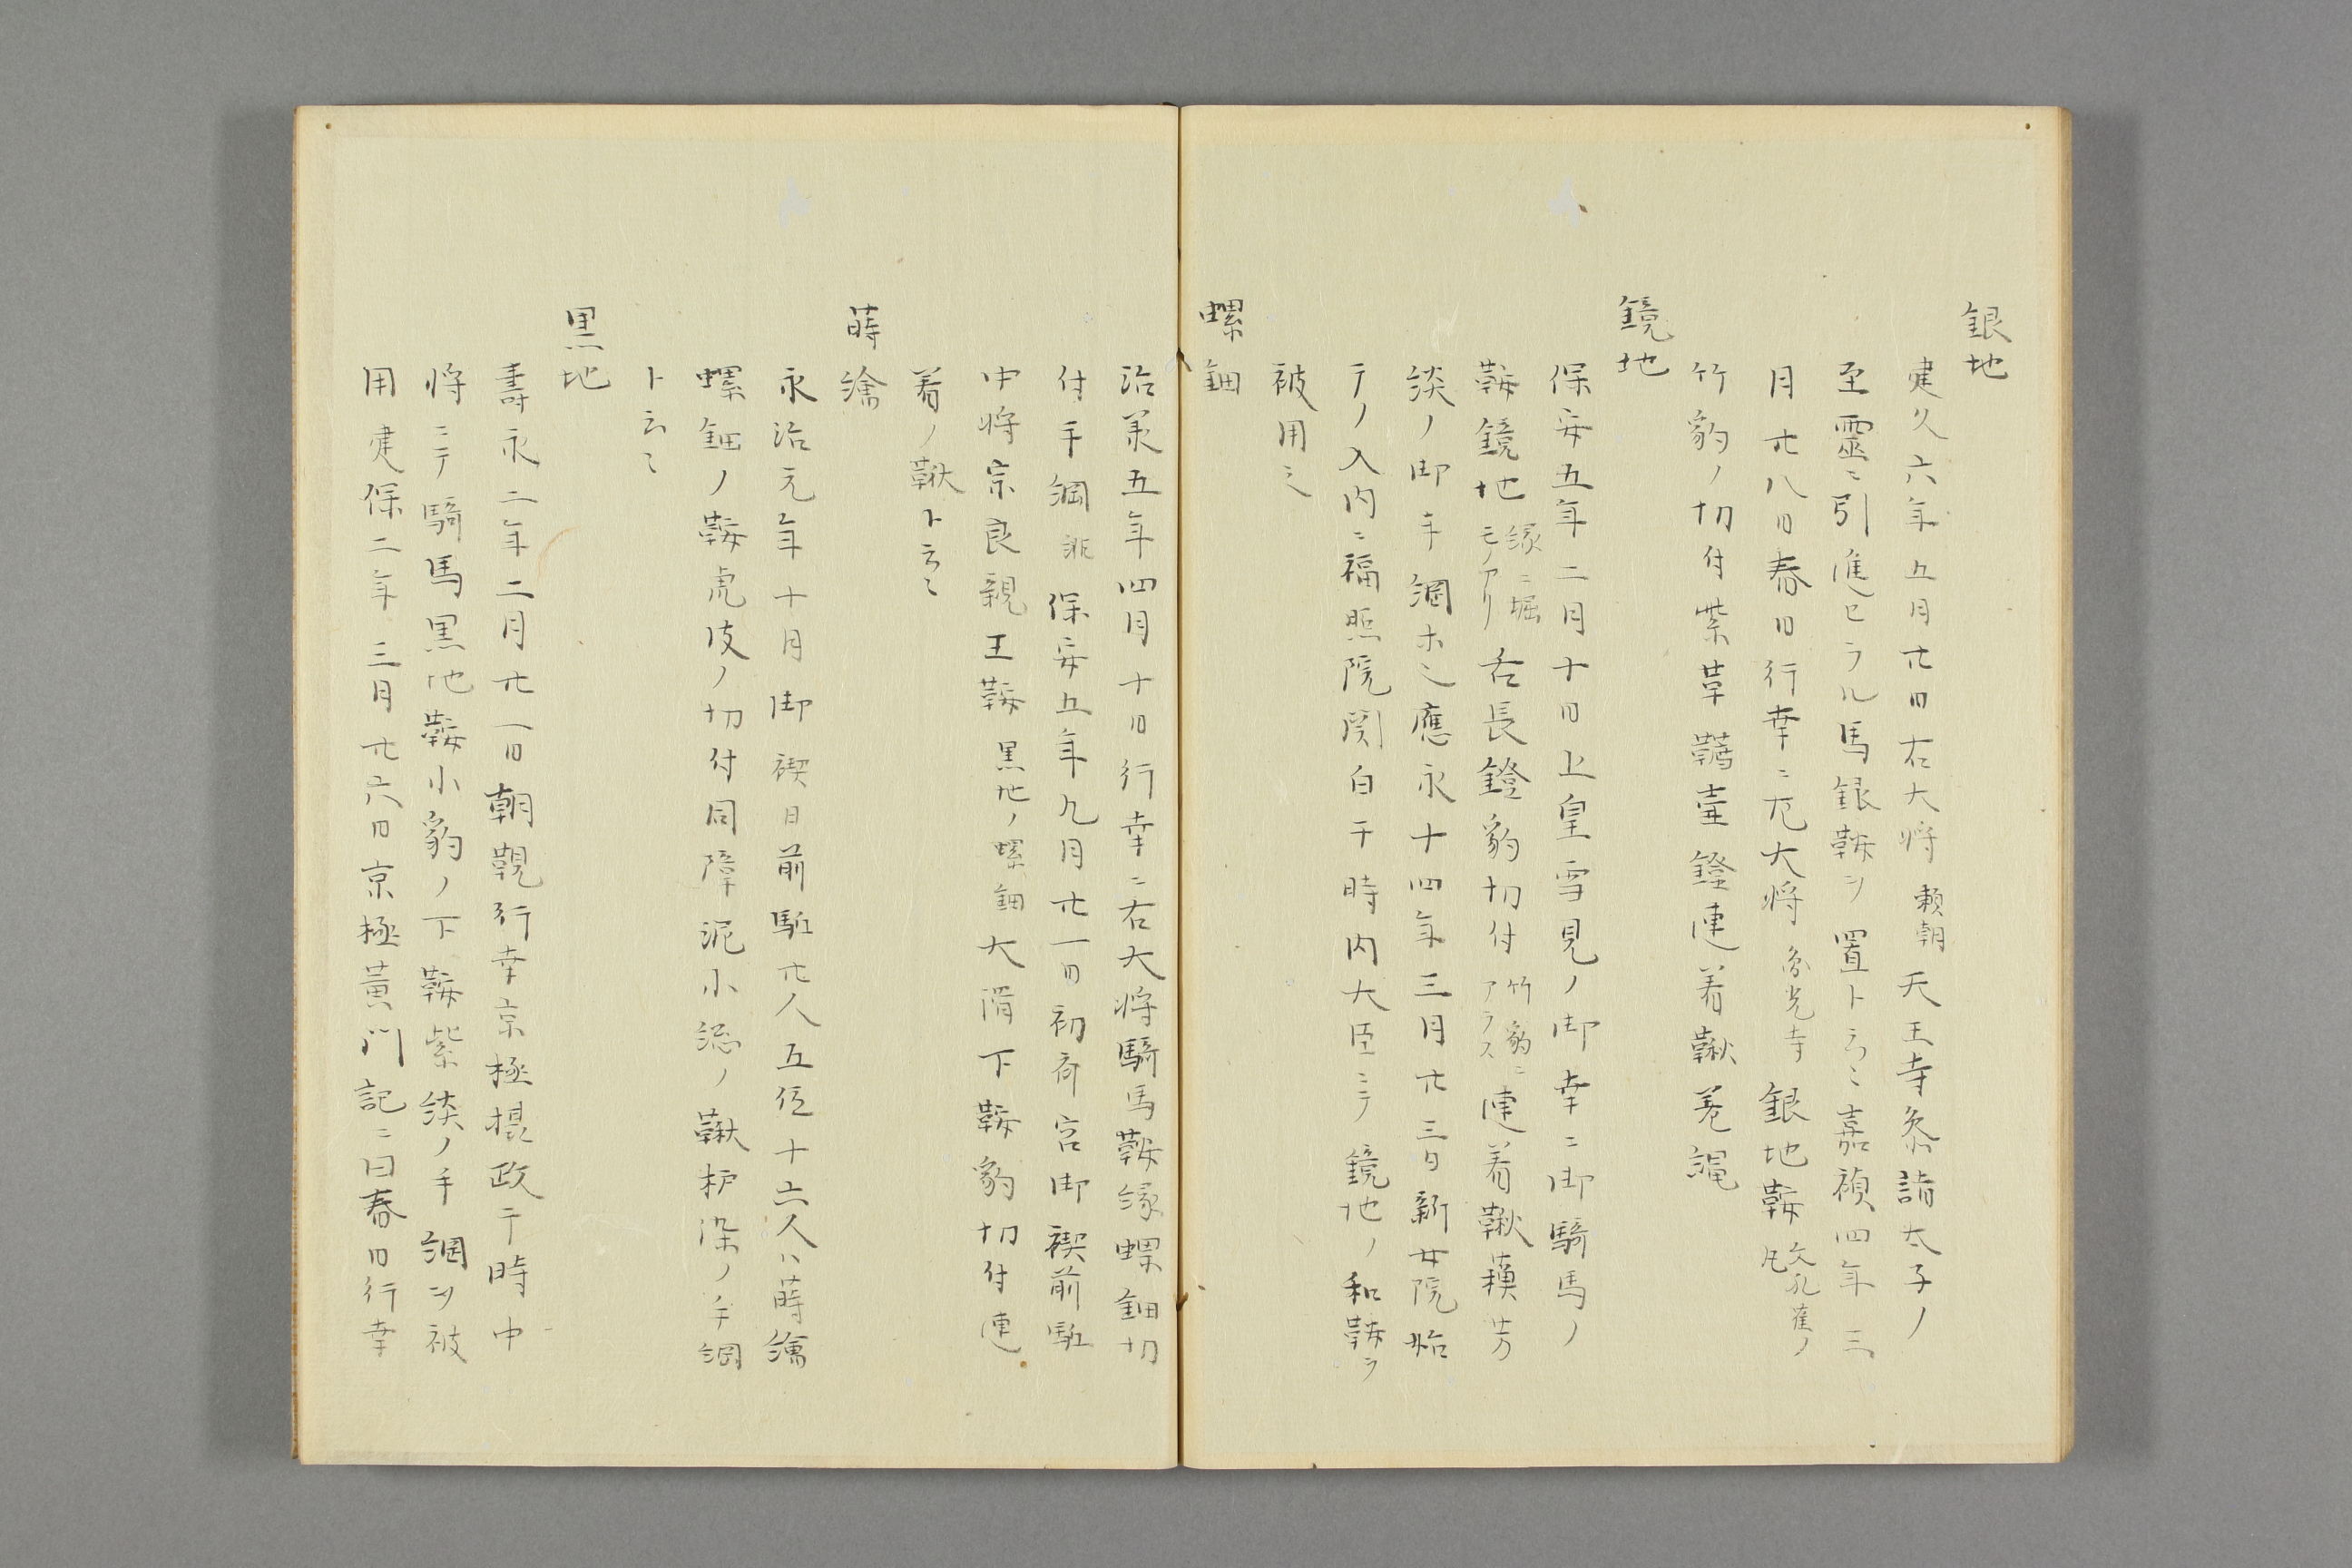 銀地
建久六年五月廿日右大将頼朝天王寺参詣太子ノ
至霊ニ引進セラル馬銀鞍ヲ置ト云々嘉禎四年三
月廿八日春日行幸ニ左大将 光寺銀地鞍文孔雀ノ丸
竹豹ノ切付紫革韉壷鐙連着鞦差縄
鏡地
保安五年二月十日上皇雪見ノ御幸ニ御騎馬ノ
鞍鏡地縁ニ堀モノアリ舌長鐙豹切付竹豹ニアラス連着鞦蘓芳
淡ノ御手綱ホ之應永十四年三月廿三日新女院始
テノ入内ニ福照院関白于時内大臣ニテ鏡地ノ和鞍ヲ
被用之
螺鈿
治承五年四月十日行幸ニ右大将騎馬鞍縁螺鈿切
付手綱 保安五年九月廿一日初斎宮御禊前駈
中将宗良親王鞍黒地ノ螺鈿大滑下鞍豹切付連
着ノ鞦ト云々
蒔繪
永治元年十月御禊日前駈廿人五位十六人ハ蒔繪
螺鈿ノ鞍虎皮ノ切付同障泥小総ノ鞦 染ノ手綱
ト云々
黒地
壽永二年二月廿一日朝覲行幸京極摂政于時中
将ニテ騎馬黒地鞍小豹ノ下鞍紫淡ノ手綱ヲ被
用建保二年三月廿六日京極黄門記ニ曰春日行幸